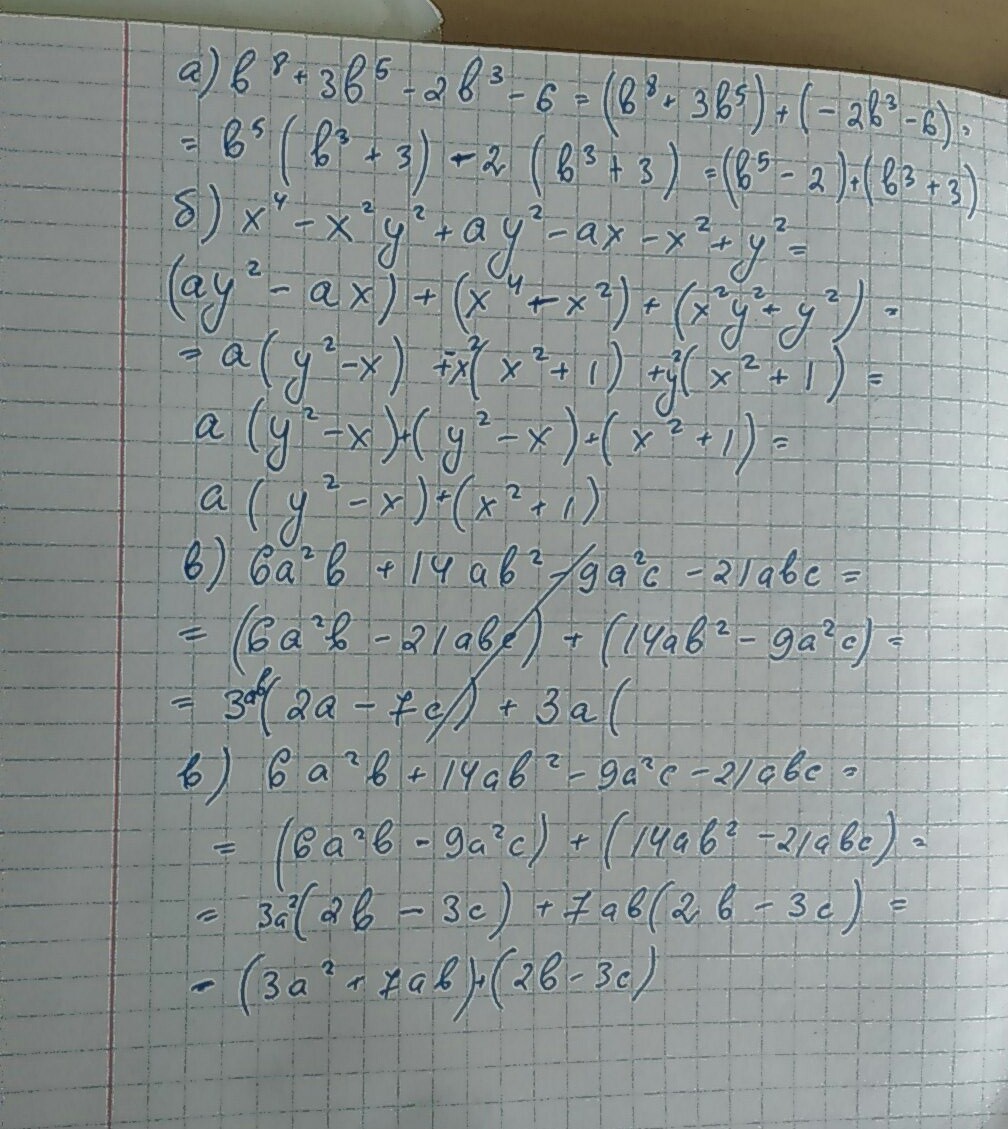 а) b⁸ + 3b⁵ - 2b³ - 6 = (b⁸ + 3b⁵) + (- 2b³ - 6) =
= b⁵ (b³ + 3) - 2 (b³ + 3) = (b⁵ - 2) + (b³ + 3)
б) x⁴ - x²y² + ay² - ax - x² + y² =
(ay² - ax) + (x⁴ - x²) + (x²y² + y²) =
= a (y² - x) + x² (x² + 1) + y² (x² + 1) =
a (y² - x) + (y² - x) + (x² + 1) =
a (y² - x) + (x² + 1)
в) 6a²b + 14ab² - 9a²c - 21abc =
= (6a²b - 21abc) + (14ab² - 9a²c) =
= 3ab (2a - 7c) + 3a (
в) 6a²b + 14ab² - 9a²c - 21abc =
= (6a²b - 9a²c) + (14ab² - 21abc) =
= 3a² (2b - 3c) + 7ab (2b - 3c) =
- (3a² + 7ab) + (2b - 3c)